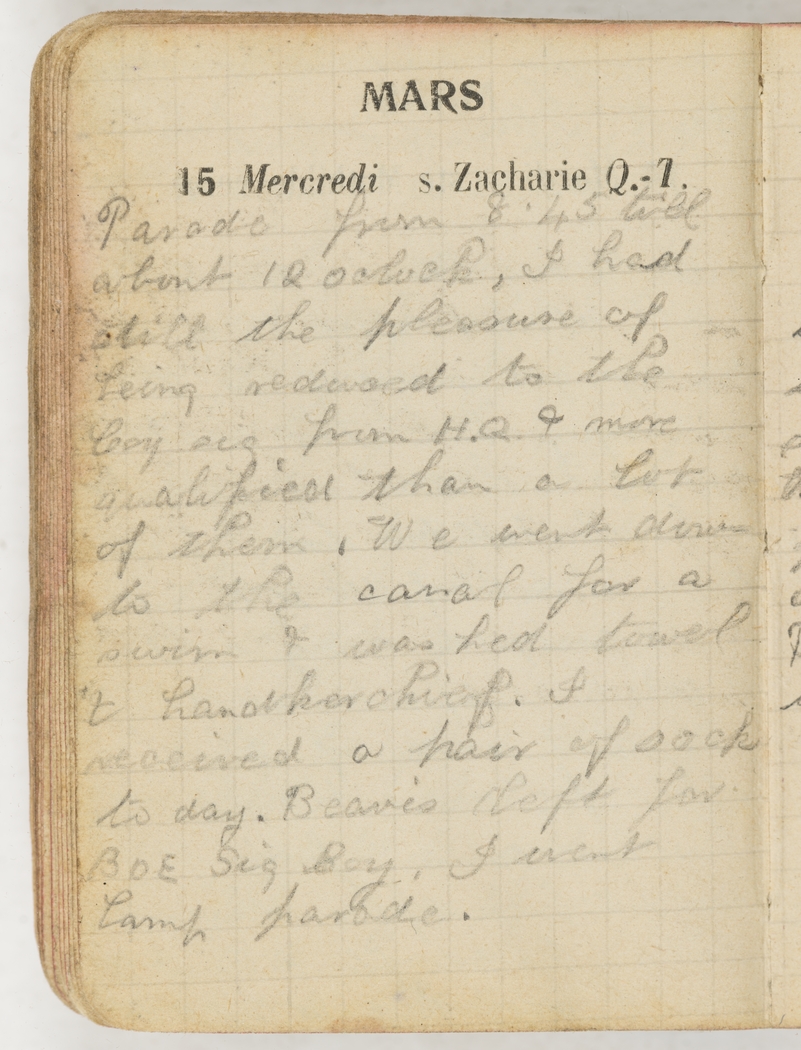 MARS
15 Mercredi s. Zacharie Q.-7.
Parade from 8.45 till
about 12 oclock, I had
still the pleasure of
being reduced to the
Coy sig from H.Q. & more
qualified than a lot
of them. We went down
to the canal for a
swim & washed towel
& handkerchief. I
received a pair of sock
to day. Beavis left for
Sig Coy. I went
Camp parade.